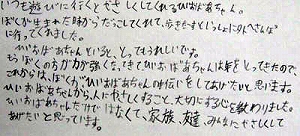 いつも遊びに行くとやさしくしてくれるひいおばあちゃん。
ぼくが生まれた時からだっこしてくれて、歩きだすといっしょに
に行ってくれました。
ひいおばあちゃんというと、とってもうれしいです。
もうぼくの方が力が強くなってきてひいおばあちゃんは年をとってきたので
これからは、ぼくがひいおばあちゃんの手伝いをしてあげたいと思います。
ひいおばあちゃんから人にやさしくすること、大切にする心を教わりました。
ひいおばあちゃんだけではなくて、家族、友達、みんなにやさしくして
あげたいと思っています。